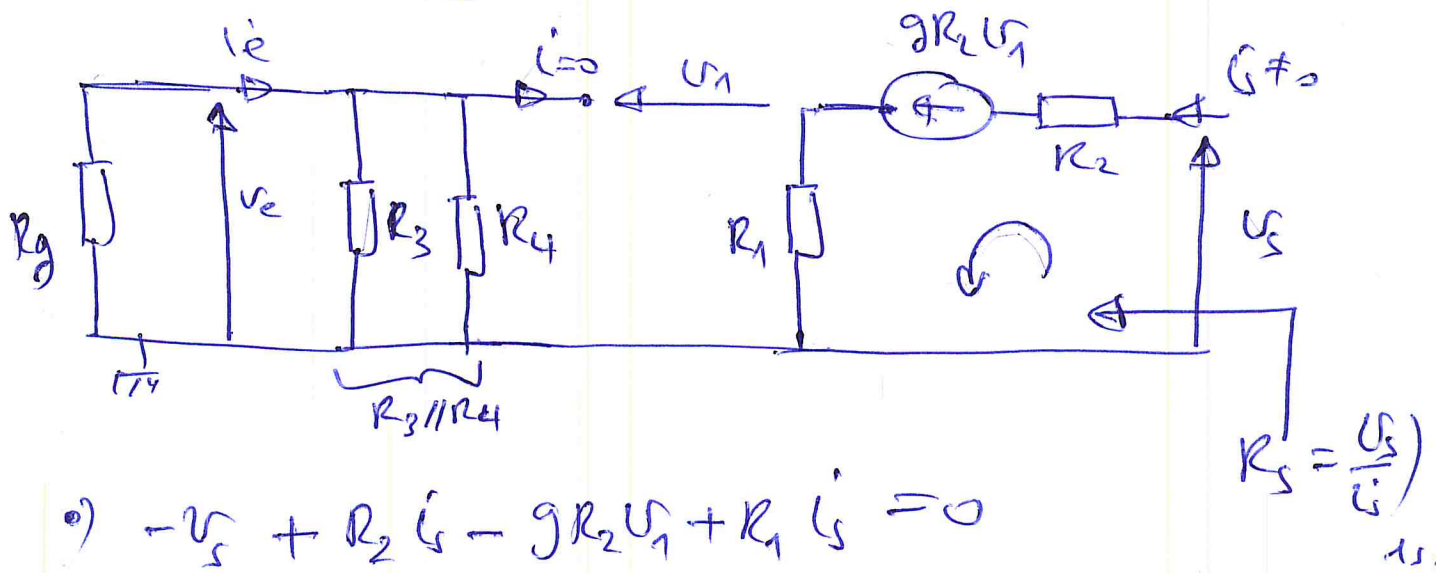 ie
i=0
v1
gR2v1
is≠0
Rg
ve
R3
R4
R1
R2
vs
R3//R4
Rs = vs/is)
•) -vs + R2 is - gR2v1 + R1 is = 0